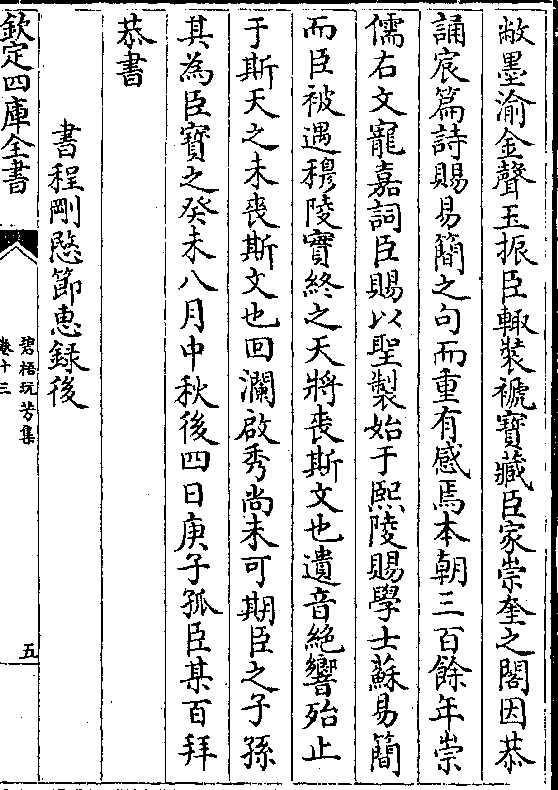 敝墨渝金聲玉振臣輙裝褫寶藏臣家崇奎之閣因恭
誦宸篇詩賜易簡之句而重有感焉本朝三百餘年崇
儒右文寵嘉詞臣賜以聖製始于熙陵賜學士蘇易簡
而臣被遇穆陵實終之天將喪斯文也遺音絶響殆止
于斯天之未喪斯文也回瀾啟秀尚未可期臣之子孫
其為臣寶之癸未八月中秋後四日庚子孤臣某百拜
恭書
書程剛愍節惠録後
欽定四庫全書
碧梧玩芳集
卷十三
五